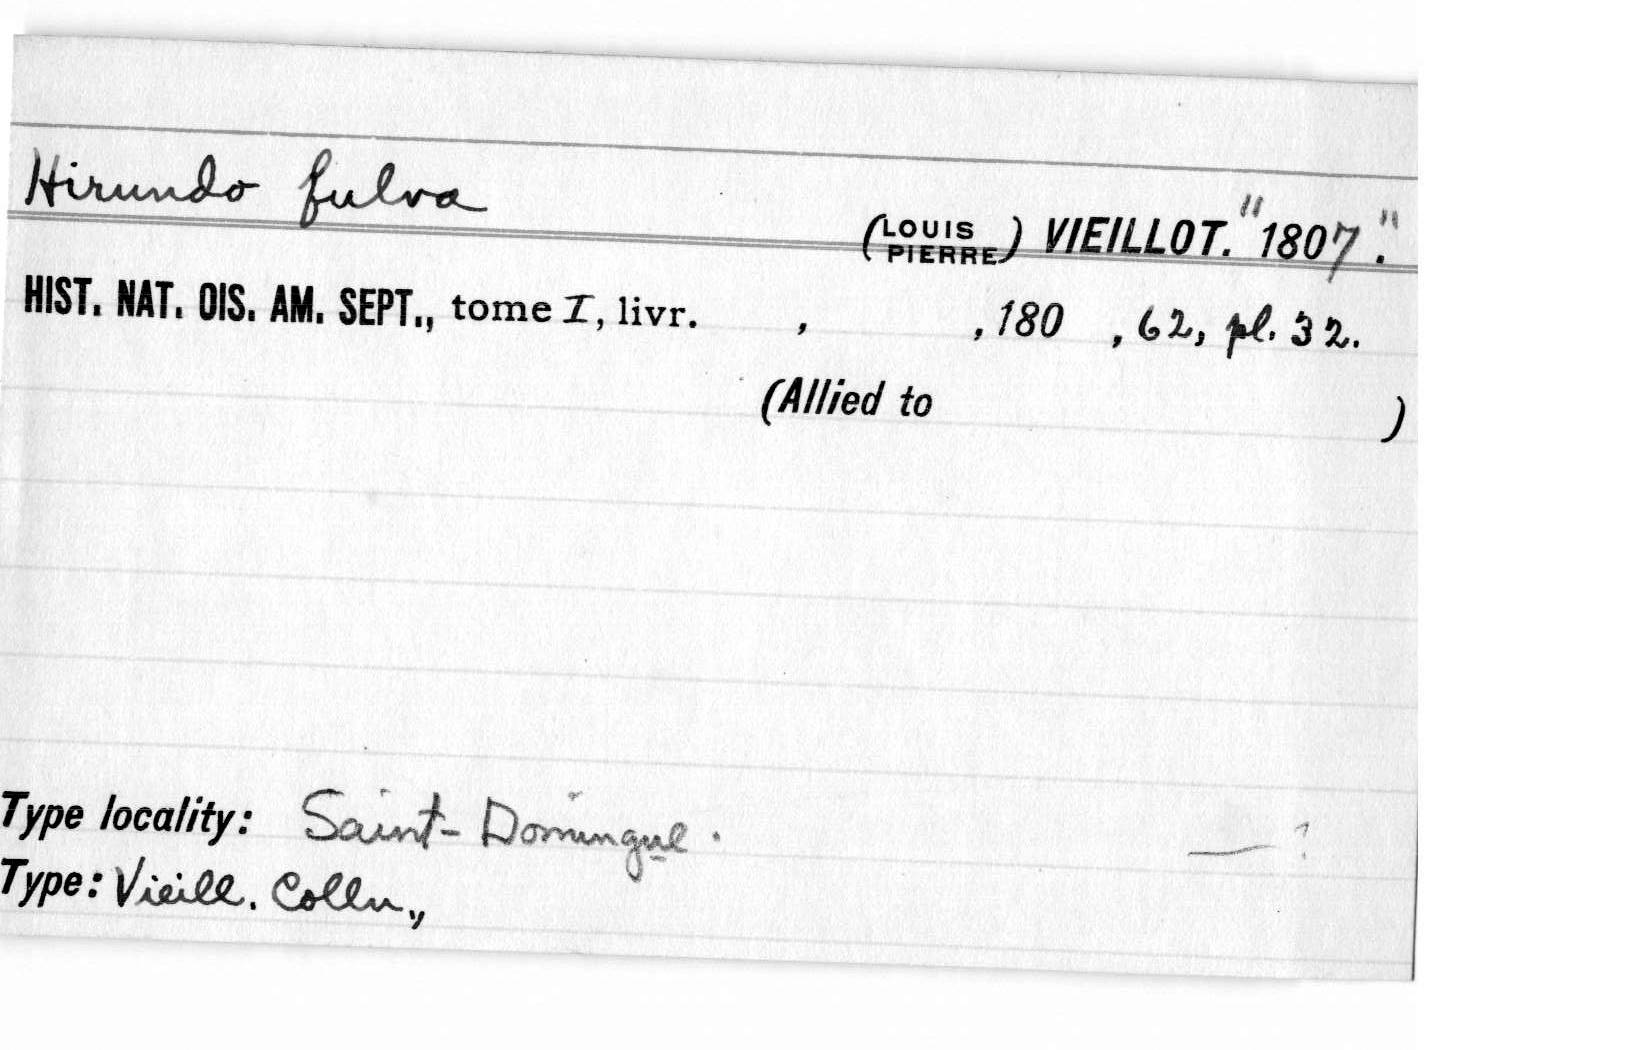 Hirundo fulva
(LOUIS PIERRE) VIEILLOT. "1807".
HIST. NAT. OIS. AM. SEPT., tome I, livr. , , 180 , 62, pl. 32.
(Allied to )
Type locality: Saint-Domingue. — ?
Type: Vieill. Colln.,